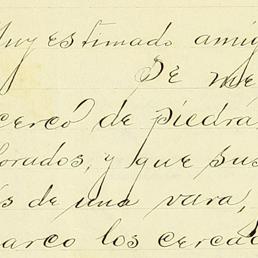 Muy estimado amig
De me
cerco de piedra
lorados, y que sus
s de una vara,
marco los cercad